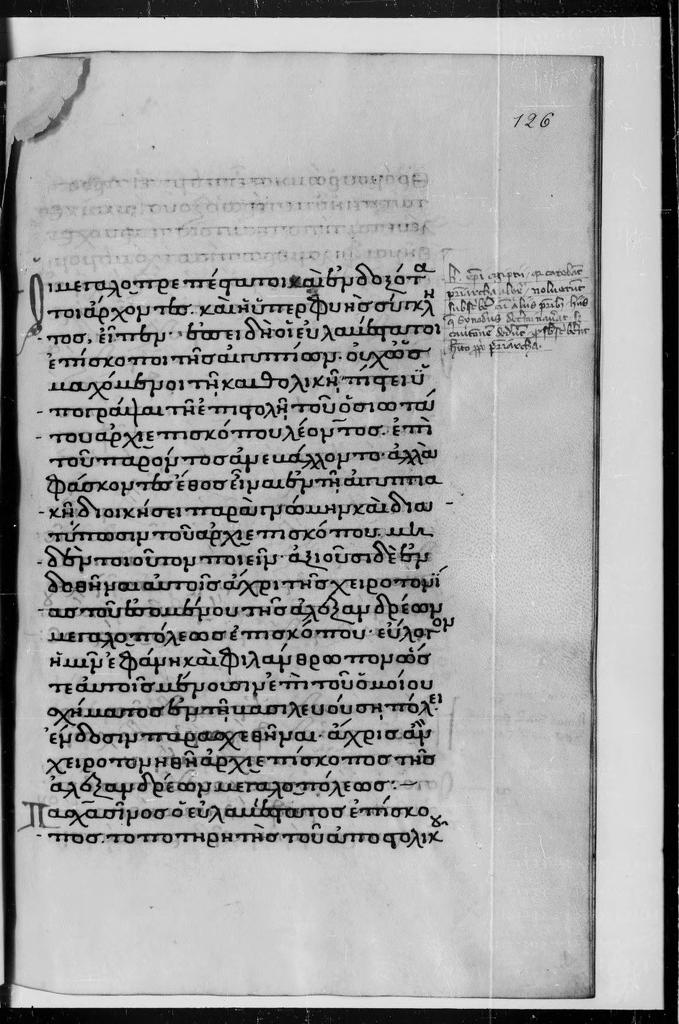 126
Οἱ μεγαλοπρεπέστατοι καὶ ἐνδοξότατ
οι ἄρχοντες. καὶ ἡ ὑπερφυὴς σύγκλη
τος, εἶπον· ἐπειδὴ οἱ εὐλαβέστατοι
ἐπίσκοποι τῆς αἰγυπτίων. οὐχ ὡς
μαχόμενοι τῇ καθολικῇ πίστει ὑ
πογράψαι τῇ ἐπιστολῇ τοῦ ὁσιωτά
του ἀρχιεπισκόπου λέοντος. ἐπὶ
τοῦ παρόντος ἀνεβάλλοντο· ἀλλὰ
φάσκοντες ἔθος εἶναι ἐν τῇ αἰγυπτια
κῇ διοικήσει παρὰ γνώμην καὶ δια
τύπωσιν τοῦ ἀρχιεπισκόπου. μη
δὲν τοιοῦτον ποιεῖν· ἀξιοῦσι δὲ ἐν
δοθῆναι αὐτοῖς ἄχρι τῆς χειροτονί
ας τοῦ ἐσομένου τῆς ἀλεξανδρέων
μεγαλοπόλεως ἐπισκόπου· εὔλογον
ἡμῖν ἐφάνη καὶ φιλάνθρωπον ὥσ
τε αὐτοῖς μένουσιν ἐπὶ τοῦ ὁμοίου
σχήματος ἐν τῇ βασιλευούσῃ πόλει
ἔνδοσιν παρασχεθῆναι· ἄχρις ἂν
χειροτονηθῇ ἀρχιεπίσκοπος τῆς
ἀλεξανδρέων μεγαλοπόλεως:—
Πασχασῖνος ὁ εὐλαβέστατος ἐπίσκο
πος. τοποτηρητὴς τοῦ ἀποστολικοῦ